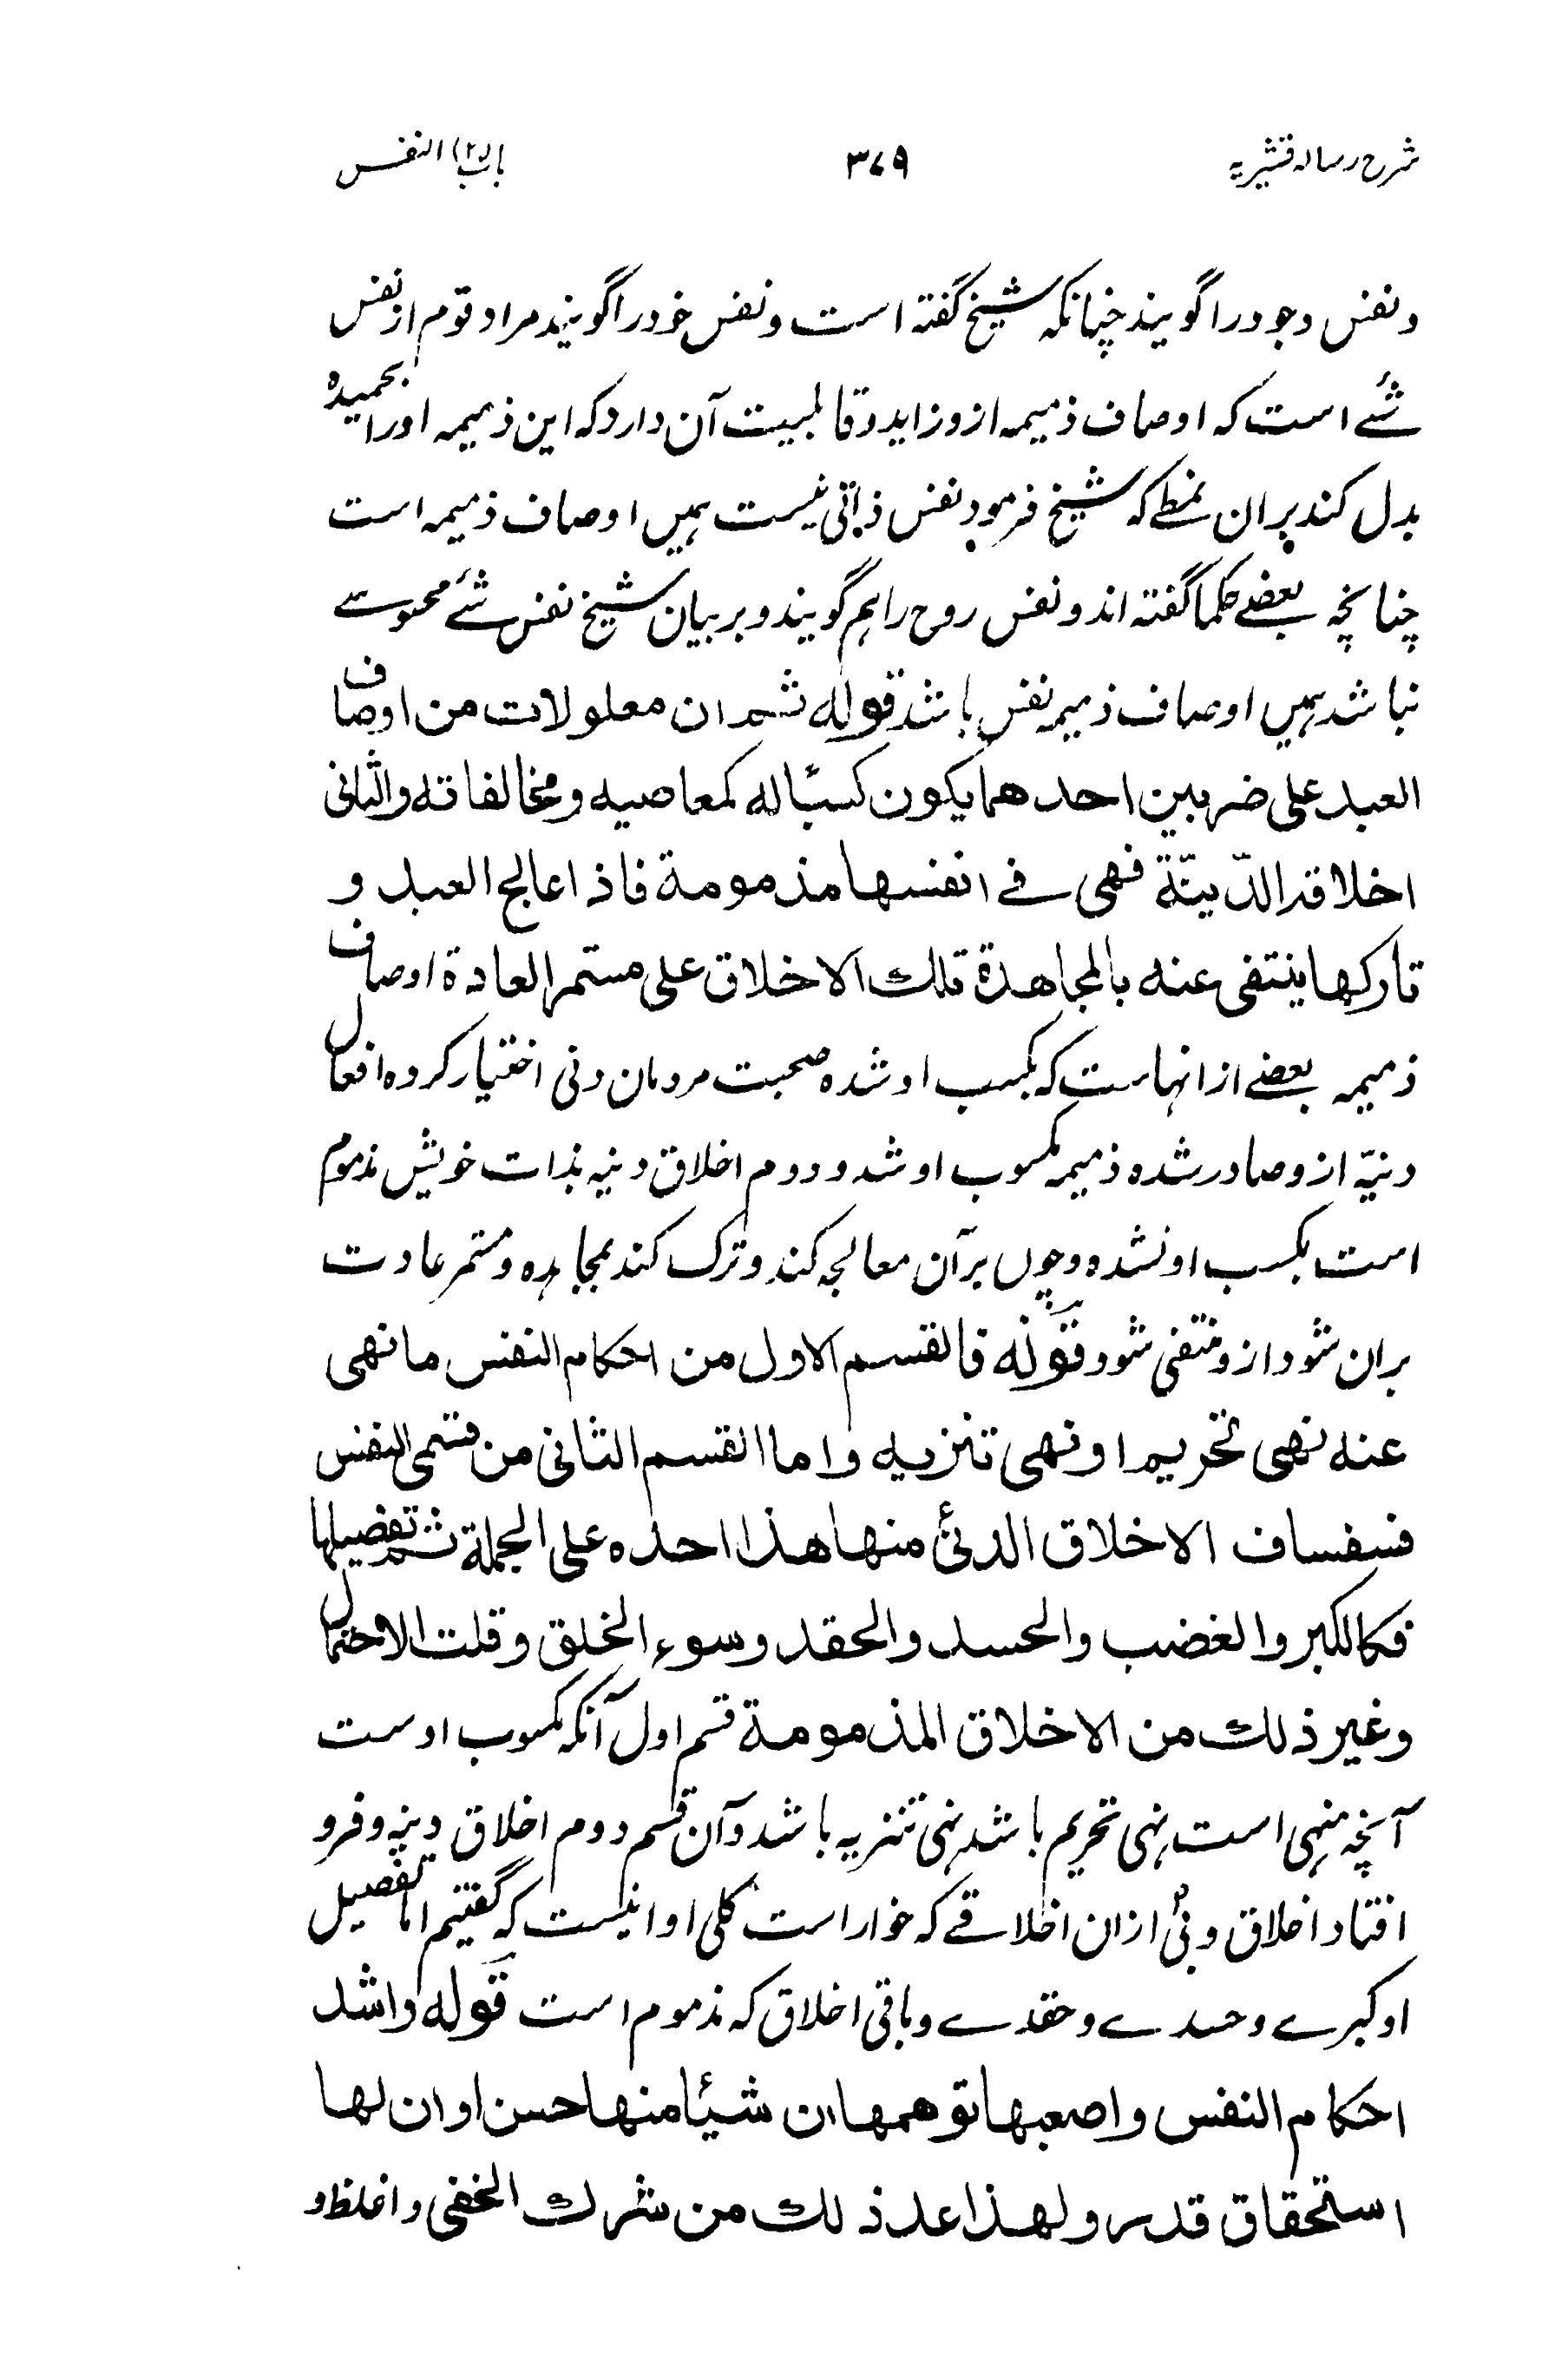 شرح رسالہ قشیریہ
۳۷۹
باب (۲) النفس
ونفس وجود را گویند چنانکہ شیخ گفتہ است ونفس خود را گویند مراد قوم از نفس
شئے است کہ اوصاف ذمیمہ ازو زاید وقابلیت آن دارد کہ این ذمیمہ او را بحمیدہ
بدل کند بران نمطے کہ شیخ فرمود نفس ذاتی نیست ہمیں اوصاف ذمیمہ است
چنانچہ بعضے حکما گفتہ اند ونفس روح را ہم گویند وبر بیان شیخ نفس شئے محسوسے
نباشد ہمیں اوصاف ذمیمہ نفس باشد قولہ ثم ان معلولات من اوصاف
العبد علی ضربین احدهما یکون کسبًا له کمعاصیه ومخالفاته والثانی
اخلاقہ الدّنیّة فهی فے انفسها مذمومة فاذا عالج العبد و
تارکها ینتفی عنه بالمجاهدة تلك الاخلاق علی مستمر العادة اوصاف
ذمیمہ بعضے از انہاست کہ بکسب او شدہ صحبت مردمان دنی اختیار کردہ افعال
دنیّہ ازو صادر شدہ ذمیمہ مکسوب او شد ودوم اخلاق دنیہ بذات خویش مذموم
است بکسب او نشدہ وچوں بر آن معالجہ کند وترک کند بمجاہدہ ومستمر عادت
بران شود ازو منتفی شود قولہ فالقسم الاول من احکام النفس ما نهی
عنه نهی تحریم او نهی تنزیه واما القسم الثانی من قسمی النفس
فسفساف الاخلاق الدنئ منها هذا احده علی الجملة ثم تفصیلها
فکالکبر والغضب والحسد والحقد وسوء الخلق وقلت الاحتمال
وغیر ذلك من الاخلاق المذمومة قسم اول آنکہ مکسوب اوست
آنچہ منہی است نہی تحریم باشد نہی تنزیہ باشد وآن قسم دوم اخلاق دنیہ وفرو
افتاد اخلاق دنئ از ان اخلاقے کہ خوار است کلی او اینست کہ گفتیم اما تفصیل
او کبرے وحسدے وحقدے وباقی اخلاق کہ مذموم است قولہ واشد
احکام النفس واصعبها توهمها ان شیئا منها حسن او ان لها
استحقاق قدر ولهذا عد ذلك من شرك الخفی واغلظ و